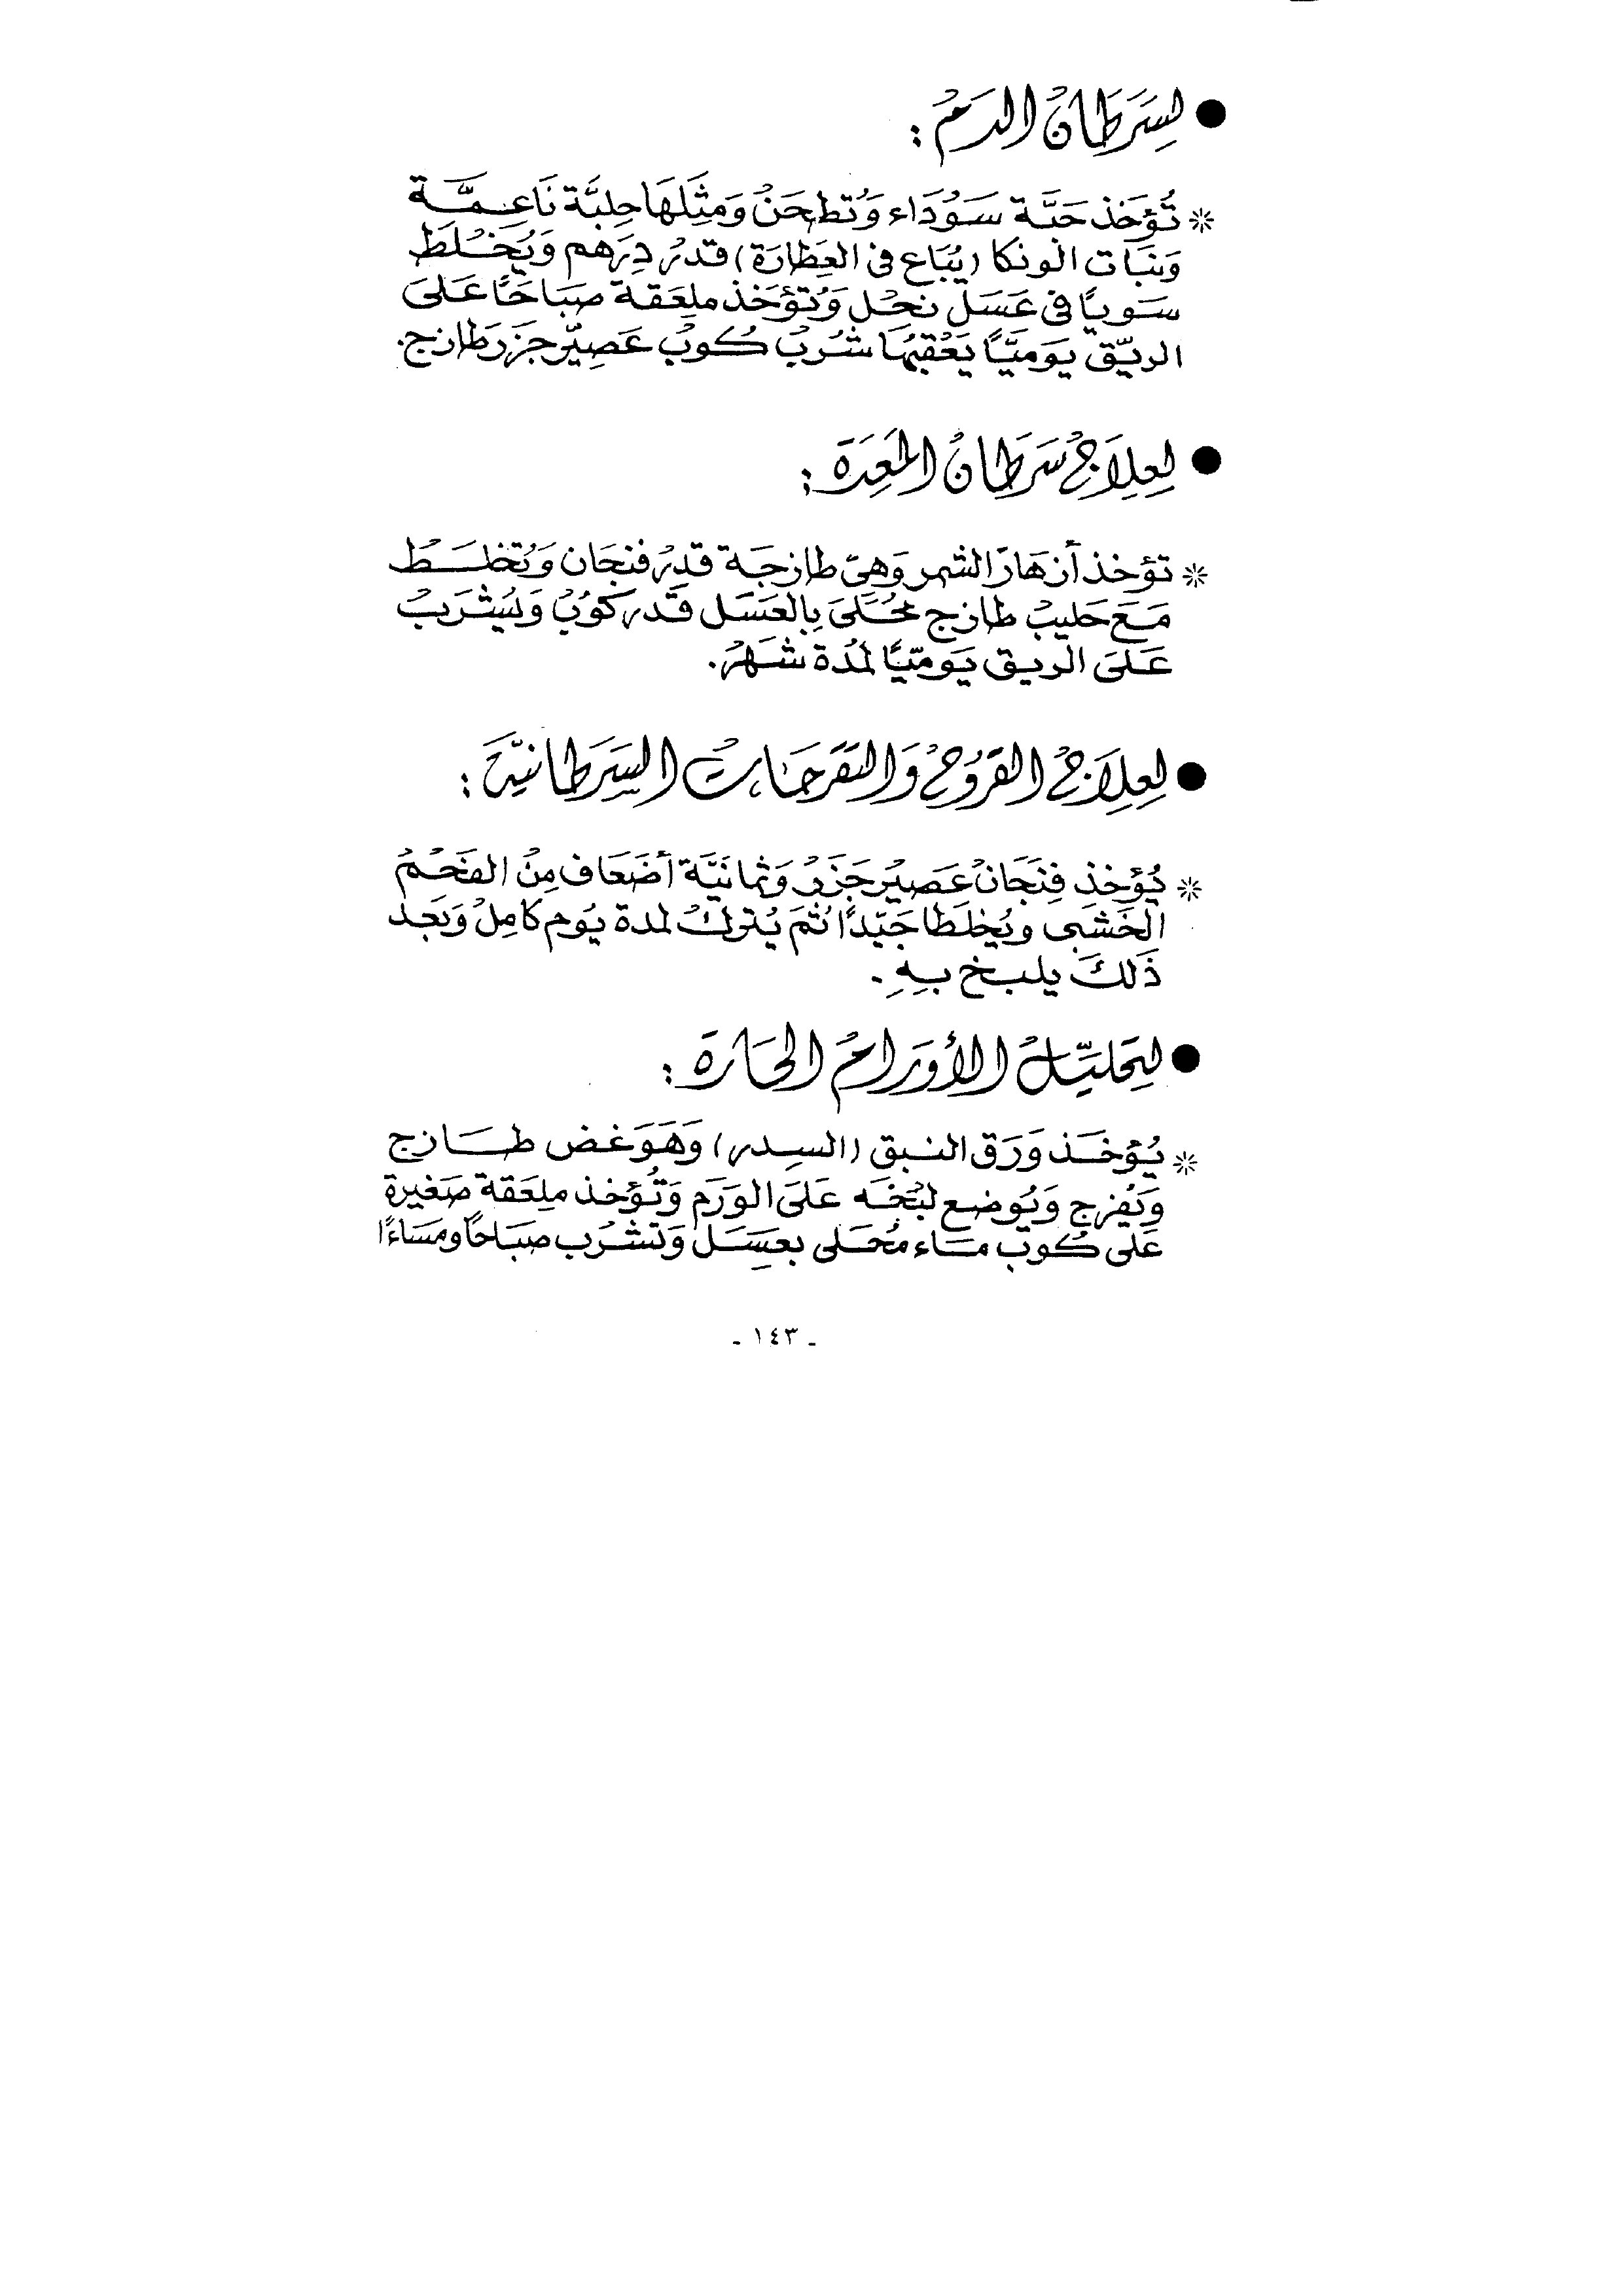 ● لسرطان الدم :
* تُؤخذ حَبَّة سَوْدَاء وَتُطحَنْ وَمِثلَهَا حِلبَّة نَاعِمَّة
وَنبَات الونكا (يُبَاع في العِطَارَة) قدرْ دِرَهم وَيُخْلَط
سَويًا في عَسَل نحْل وَتُؤخَذ ملِعَقة صَبَاحًا عَلىَ
الريّق يَوميَّا يَعْقبُهَا شُربْ كُوبْ عَصِيّر جَزَر طازج.
● لعِلَاج سَرَطان المَعِدَة :
* تؤخذ أزهَار الشمر وَهيّ طازجَة قدِرْ فنجَان وَتُخلَط
مَعَ حَليبْ طازج محُلَىَ بِالعَسَل قَدر كوُبْ وَيُشرَبْ
عَلىَ الريق يَومّيًا لمُدة شَهرْ.
● لعِلَاجْ القرُوحْ وَالتقَرحَاتْ السَّرَطانيّة :
* يُؤخذِ فِنجَانْ عَصيرْ جَزَرْ وَثمانيَّة أضعَاف مِنْ الفَحْمْ
الخَشبى ويُخلَطا جَيّدًا ثُمَ يُتركْ لمدة يَوم كامِلْ وَبَعد
ذَلكَ يلبخ بهِ .
● لتحليّلْ الأورَامْ الحَارة :
* يُؤخَذ وَرَق النبق (السِدر) وَهَوَ غض طَازج
وَيُفرج وَيُوضع لبُخَه عَلىَ الورَم وَتُؤخذ ملِعَقة صَغيرة
عَلى كُوبْ مَاء مُحَلى بعَسَل وَتشرُب صبَاحًا ومَسَاءًا
- ١٤٣ -